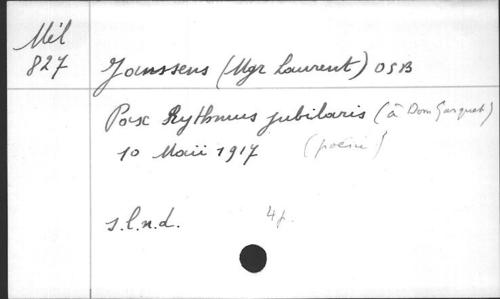 Mél
827
Janssens (Mgr Laurent) OSB
Pax Rythmus jubilaris (à Dom Gasquet)
10 Maii 1917 (poésie)
s.l.n.d. 4 p.